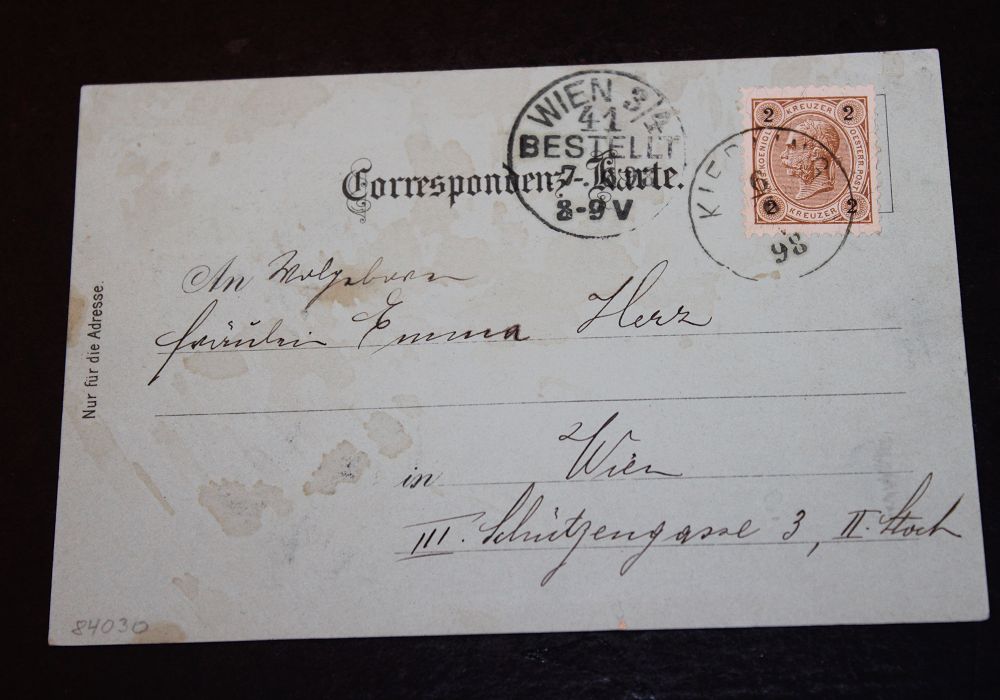 WIEN 3/4
41
BESTELLT
7
8-9 V
Correspondenz-Karte.
2 KREUZER 2
2 KREUZER 2
98
An Wolgeboren
Fräulein Emma Herz
in Wien
III. Schützengasse 3, II. Stock
Nur für die Adresse.
84030